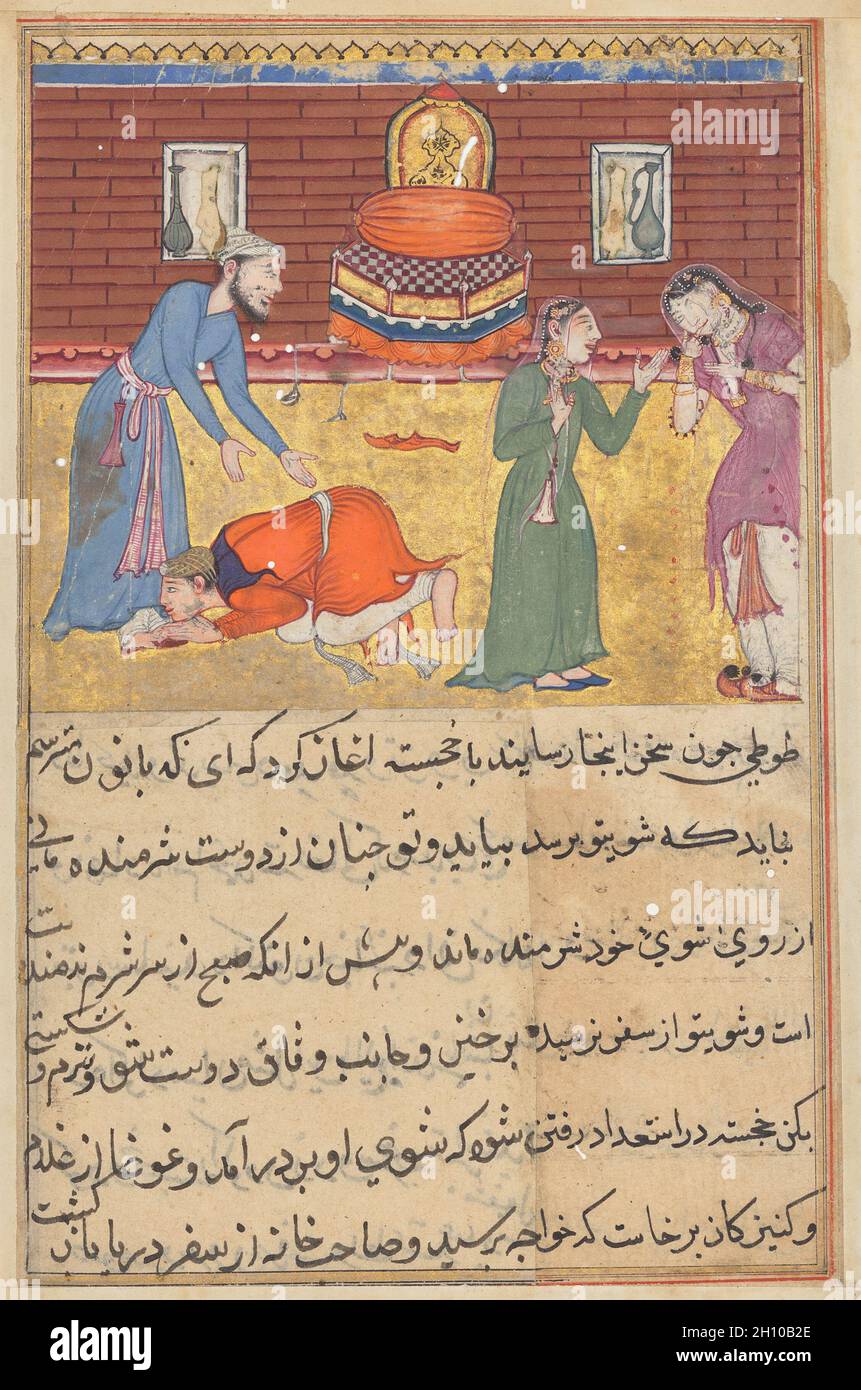 طوطي جون سخن اينجا رسايند با خجسته اغاز كرد كه اي كه بانون مترسم
بنايد كه شويتو برسد بيايد وتو جنان از دوست شرمنده ماني
از روي شوي خود شرمنده ماند وپيش از انكه صبح از سر شرم
است وشويتو از سفر نرسيده برخيز وجانب وثاق دوست شو وشرم و
بكن خجسته در استعداد رفتن شد كه شوي او بر در آمد وغوغا از غلام
وكنيزكان برخاست كه خواجه برسيد وصاحب خانه از سفر دريا باز كشت
alamy
alamy
Image ID: 2H10B2E
www.alamy.com